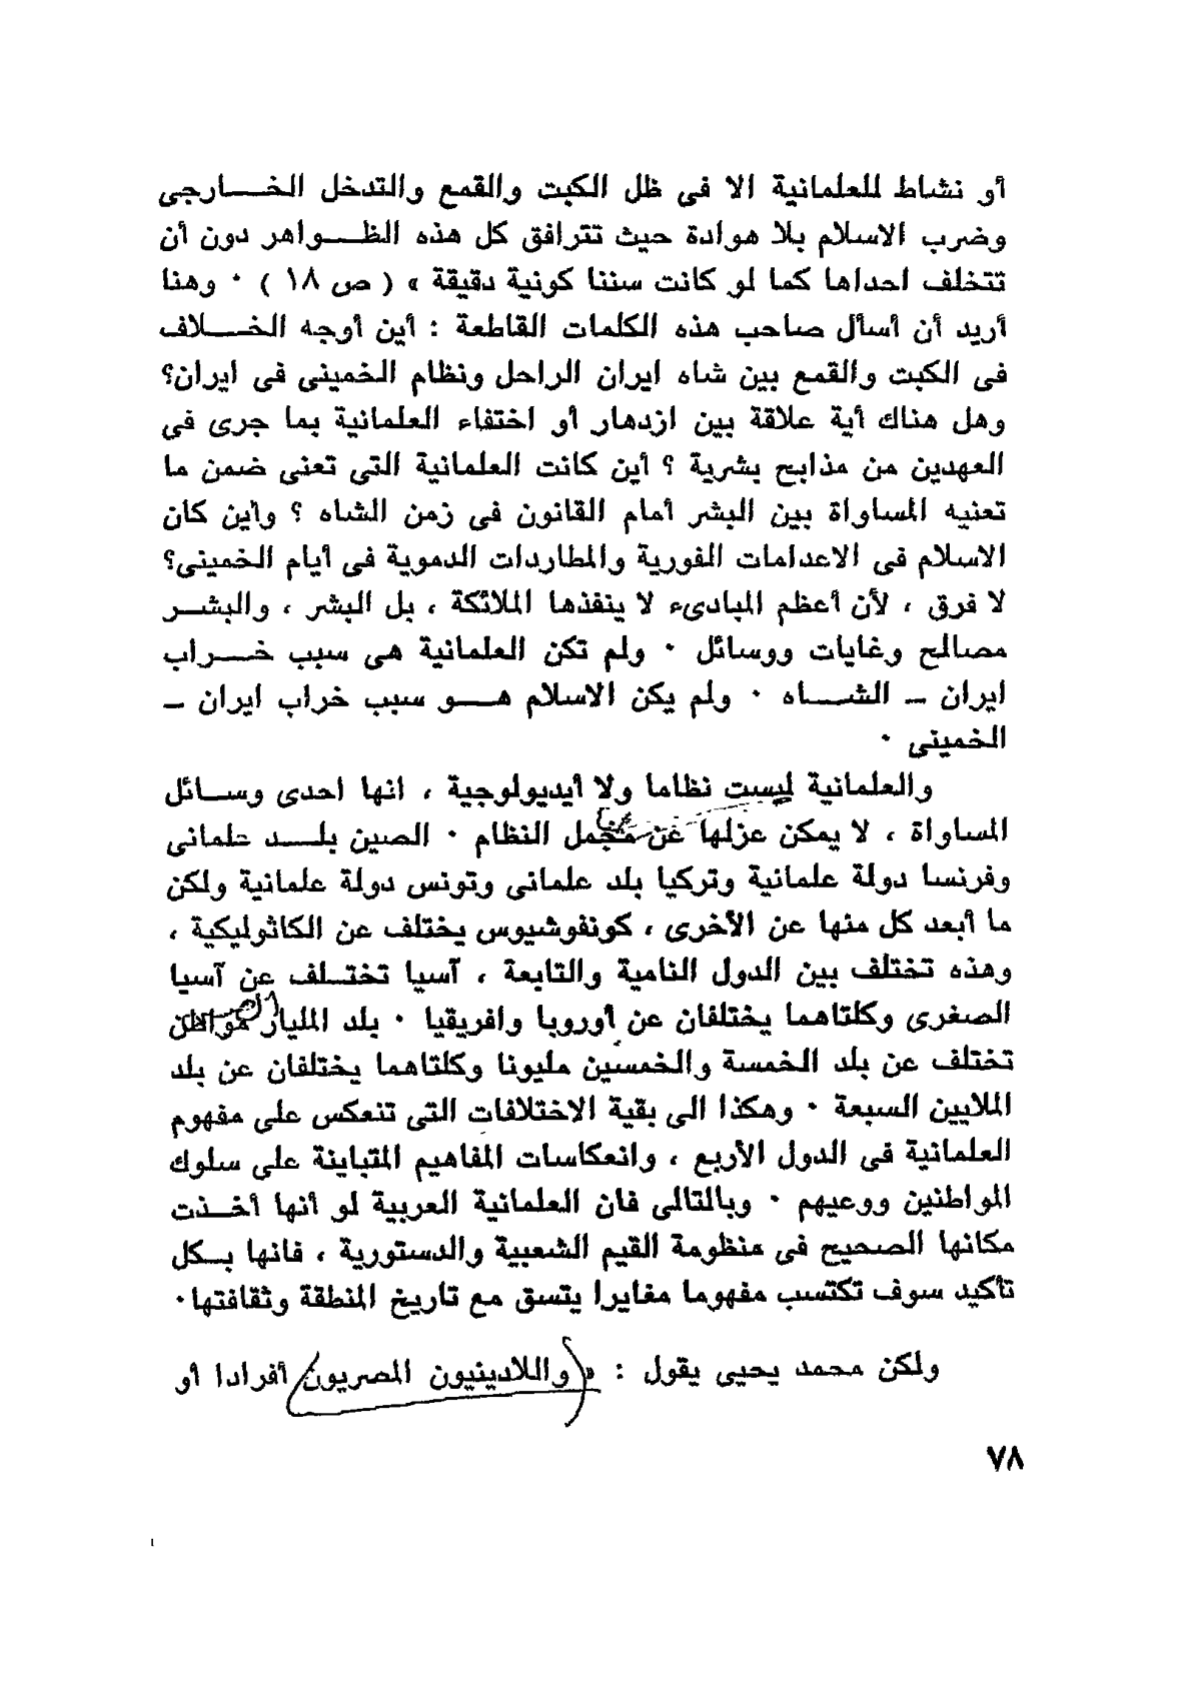 أو نشاط للعلمانية الا فى ظل الكبت والقمع والتدخل الخـــارجى
وضرب الاسلام بلا هوادة حيث تترافق كل هذه الظـــواهر دون أن
تتخلف احداها كما لو كانت سننا كونية دقيقة » ( ص ١٨ ) ٠ وهنا
أريد أن أسأل صاحب هذه الكلمات القاطعة : أين أوجه الخـــلاف
فى الكبت والقمع بين شاه ايران الراحل ونظام الخمينى فى ايران؟
وهل هناك أية علاقة بين ازدهار أو اختفاء العلمانية بما جرى فى
العهدين من مذابح بشرية ؟ أين كانت العلمانية التى تعنى ضمن ما
تعنيه المساواة بين البشر أمام القانون فى زمن الشاه ؟ وأين كان
الاسلام فى الاعدامات الفورية والمطاردات الدموية فى أيام الخمينى؟
لا فرق ، لأن أعظم المبادىء لا ينفذها الملائكة ، بل البشر ، والبشـــر
مصالح وغايات ووسائل ٠ ولم تكن العلمانية هى سبب خـــراب
ايران ــ الشـــاه ٠ ولم يكن الاسلام هـــو سبب خراب ايران ــ
الخمينى ٠
والعلمانية ليست نظاما ولا أيديولوجية ، انها احدى وســائل
المساواة ، لا يمكن عزلها عن مجمل النظام ٠ الصين بلـــد علمانى
وفرنسا دولة علمانية وتركيا بلد علمانى وتونس دولة علمانية ولكن
ما أبعد كل منها عن الأخرى ، كونفوشيوس يختلف عن الكاثوليكية ،
وهذه تختلف بين الدول النامية والتابعة ، آسيا تختــلف عن آسيا
الصغرى وكلتاهما يختلفان عن أوروبا وافريقيا ٠ بلد المليار مواطن
تختلف عن بلد الخمسة والخمسين مليونا وكلتاهما يختلفان عن بلد
الملايين السبعة ٠ وهكذا الى بقية الاختلافات التى تنعكس على مفهوم
العلمانية فى الدول الأربع ، وانعكاسات المفاهيم المتباينة على سلوك
المواطنين ووعيهم ٠ وبالتالى فان العلمانية العربية لو أنها أخــذت
مكانها الصحيح فى منظومة القيم الشعبية والدستورية ، فانها بــكل
تأكيد سوف تكتسب مفهوما مغايرا يتسق مع تاريخ المنطقة وثقافتها٠
ولكن محمد يحيى يقول : « واللادينيون المصريون أفرادا أو
٧٨